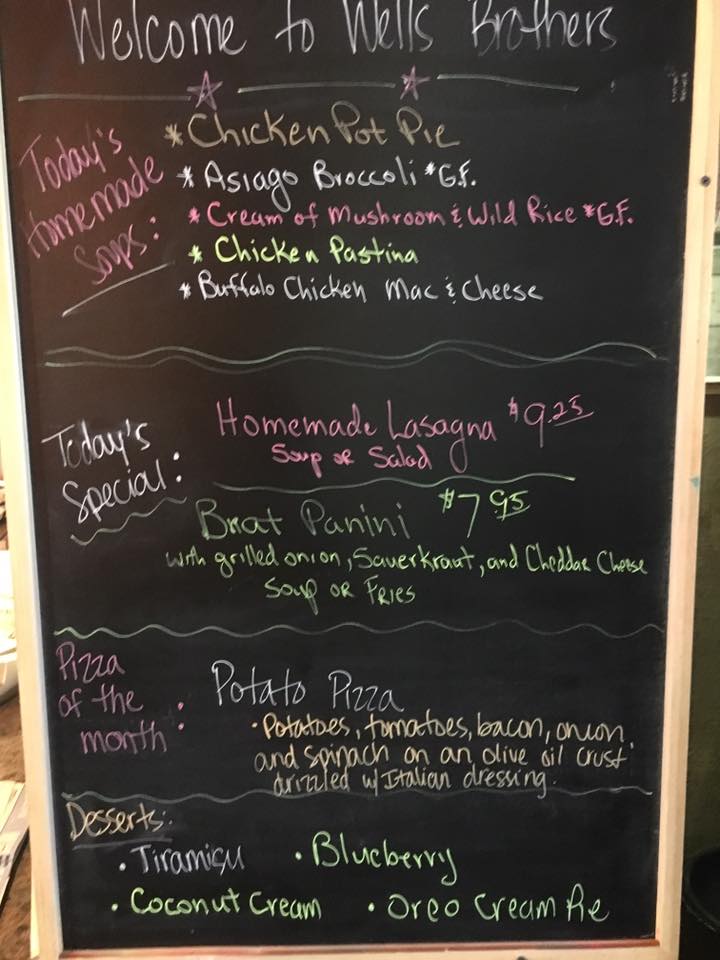 Welcome to Wells Brothers
Today's Homemade Soups:
* Chicken Pot Pie
* Asiago Broccoli *G.F.
* Cream of Mushroom & Wild Rice *G.F.
* Chicken Pastina
* Buffalo Chicken Mac & Cheese
Today's Special:
Homemade Lasagna $9.25
Soup or Salad
Brat Panini $7.95
with grilled onion, Sauerkraut, and Cheddar Cheese
Soup or Fries
Pizza of the month:
Potato Pizza
• Potatoes, tomatoes, bacon, onion,
and spinach on an olive oil crust
drizzled w/ Italian dressing.
Desserts:
• Tiramisu • Blueberry
• Coconut Cream • Oreo Cream Pie